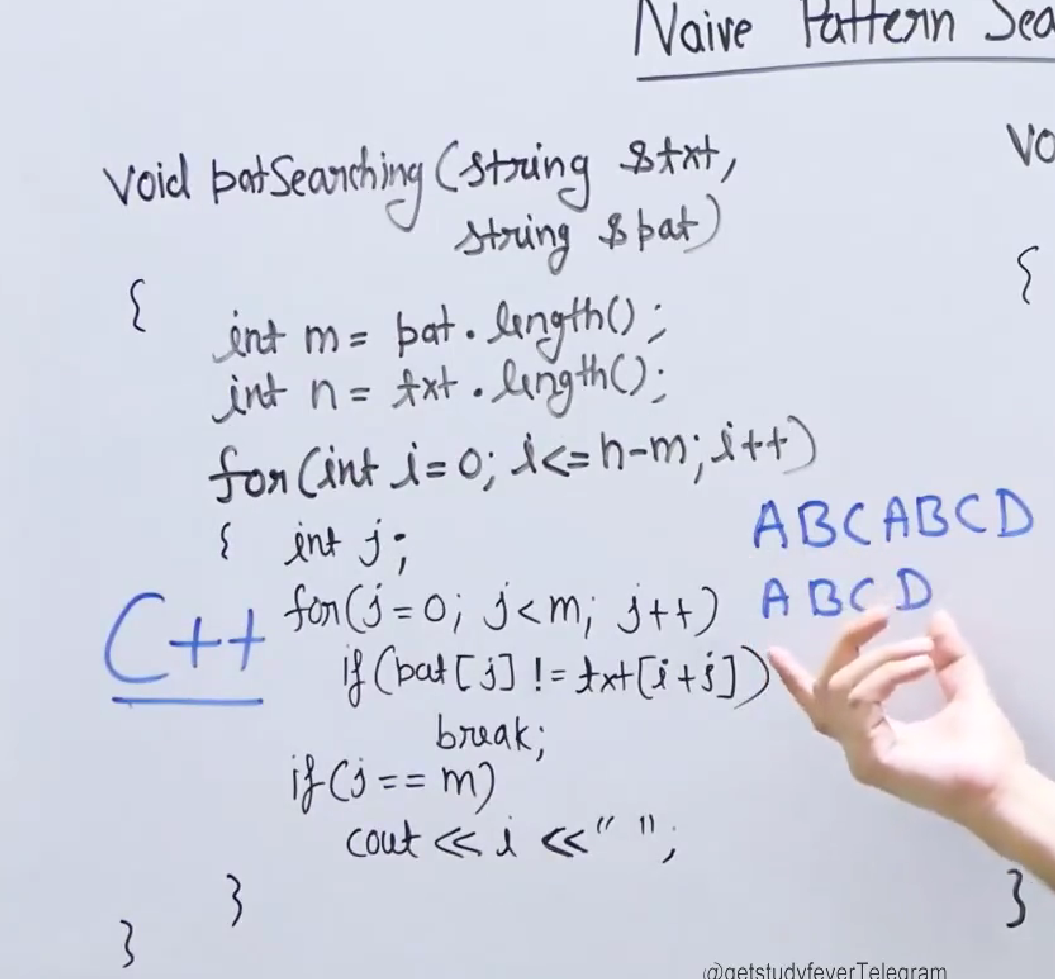 Naive Pattern Sea
void patSearching(string &txt,
string &pat)
{
int m = pat.length();
int n = txt.length();
for(int i=0; i<=n-m; i++)
{ int j;
for(j=0; j<m; j++)
if(pat[j] != txt[i+j])
break;
if(j==m)
cout << i << " ";
}
}
C++
ABCABCD
ABCD
vo
{
}
@getstudyfeverTelegram